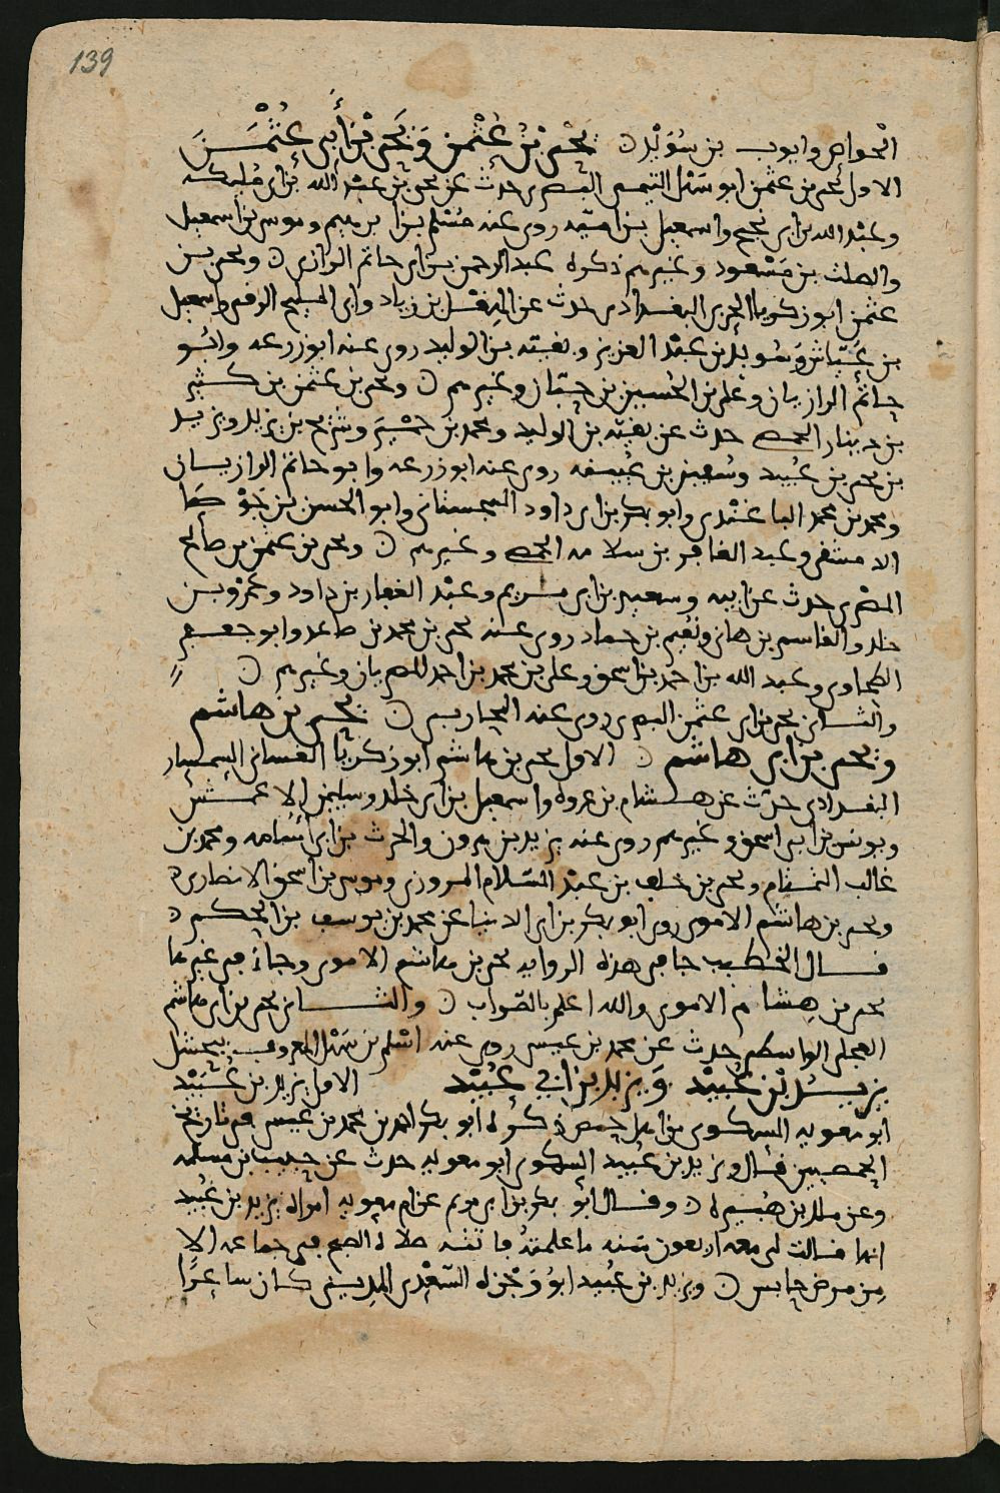 139
الخواص وايوب بن سُوَيْد ۞ يحيى بْنُ عُثْمٰن وَيَحيى بْنُ أَبِي عُثْمٰنَ
الاول يحيى بن عثمن ابو سَهْل التيمي البصري حدث عن يحيى بن عبْد الله بن ابي مُليكه
وعبْد الله بن ابي نجيح واسمعيل بن اميّه روى عنه مُسْلم بن ابرهيم وموسى بن اسمعيل
والصلت بن مَسْعود وغيرهم ذكره عبد الرحمن بن ابي حاتم الرازي ۞ ويحيى بن
عثمن ابو زكريا الحربي البغدادي حدث عن الهِقْل بن زياد وابي المليح الرقي واسمعيل
بن عَيّاش وَسُويْد بن عبْد العزيز وبقيّه بن الوليد روى عنه ابو زرعه وابُو
حاتم الرازيان وعلي بن الحُسين بن حبّان وغيرهم ۞ ويحيى بن عثمن بن كثير
بن دينار الحمصي حدث عن بقيّه بن الوليد ومحمد بن حِمْيَر وشريح بن يزيد ويزيد
بن يحيى بن عُبيد وسُفين بن عُيينه روى عنه ابو زرعه وابو حاتم الرازيان
ومحمد بن محمد الباغنْدي وابو بكر بن ابي داود السجستاني وابو الحسن بن جَوْصَا
الدمشقي وعبد الغافر بن سلامه الحمصي وغيرهم ۞ ويحيى بن عثمن بن صالح
المصْري حدث عن ابيه وسعيد بن ابي مريم وعبْد الغفار بن داود وعَمْرو بن
خلد والقاسم بن هاني ونُعَيم بن حماد روى عنه يحيى بن محمد بن صاعد وابو جعفر
الطحاوي وعبد الله بن احمد بن اسحق وعلي بن محمد بن احمد المصريان وغيرهم ۞
والثاني يحيى بن ابي عثمن البصري روى عنه ۞ يحيى بن هاشم
ويحيى بن ابي هاشم ۞ الاول يحيى بن هاشم ابو زكريا الغساني السمسار
البغدادي حدّث عن هشام بن عروه واسمعيل بن ابي خلد وسليمن الاعمش
ويونس بن ابي اسحق وغيرهم روى عنه يزيد بن هرون والحرث بن ابي اُسامه ومحمد بن
غالب التمتام ويحيى بن خلف بن عبْد السّلام المروزي وموسى بن اسحق الانصاري ۞
ويحيى بن هاشم الاموي روى ابو بكر بن ابي الدنيا عن محمد بن يوسف بن الحكم ۞
قال الخطيب جا في هذه الروايه يحيى بن هاشم الاموي وجا في غيرها
يحيى بن هِشام الاموي والله اعلم بالصّواب ۞ والثاني يحيى بن ابي هاشم
العجلي الواسطي حدث عن محمد بن عيسى روى عنه اسْلم بن سَهْل المعروف ببحشل
يزيدُ بْن عُبيْد وَيزيد بن ابي عُبيْد الاول يزيد بن عُبَيْد
ابو معويه السكوني من اهل حمص ذكرُه ابو بكر احمد بن محمد بن عيسى في تاريخ
الحمصيين فقال ويزيد بن عُبيد السكوني ابو معويه حدث عن حبيب بن مسلمه
وعن ملك بن هُبَيره ۞ وقال ابُو بكر بن ابي مريم عن ام معويه امراه يزيد بن عُبيد
انها قالت لي معه اربعون سَنه ما علمتهُ فاتته صلاه الصبح في جماعه الا
مِن مرض حابس ۞ ويزيد بن عُبيد ابُو وَجْزه السّعْدي المديني كان شاعِرًا